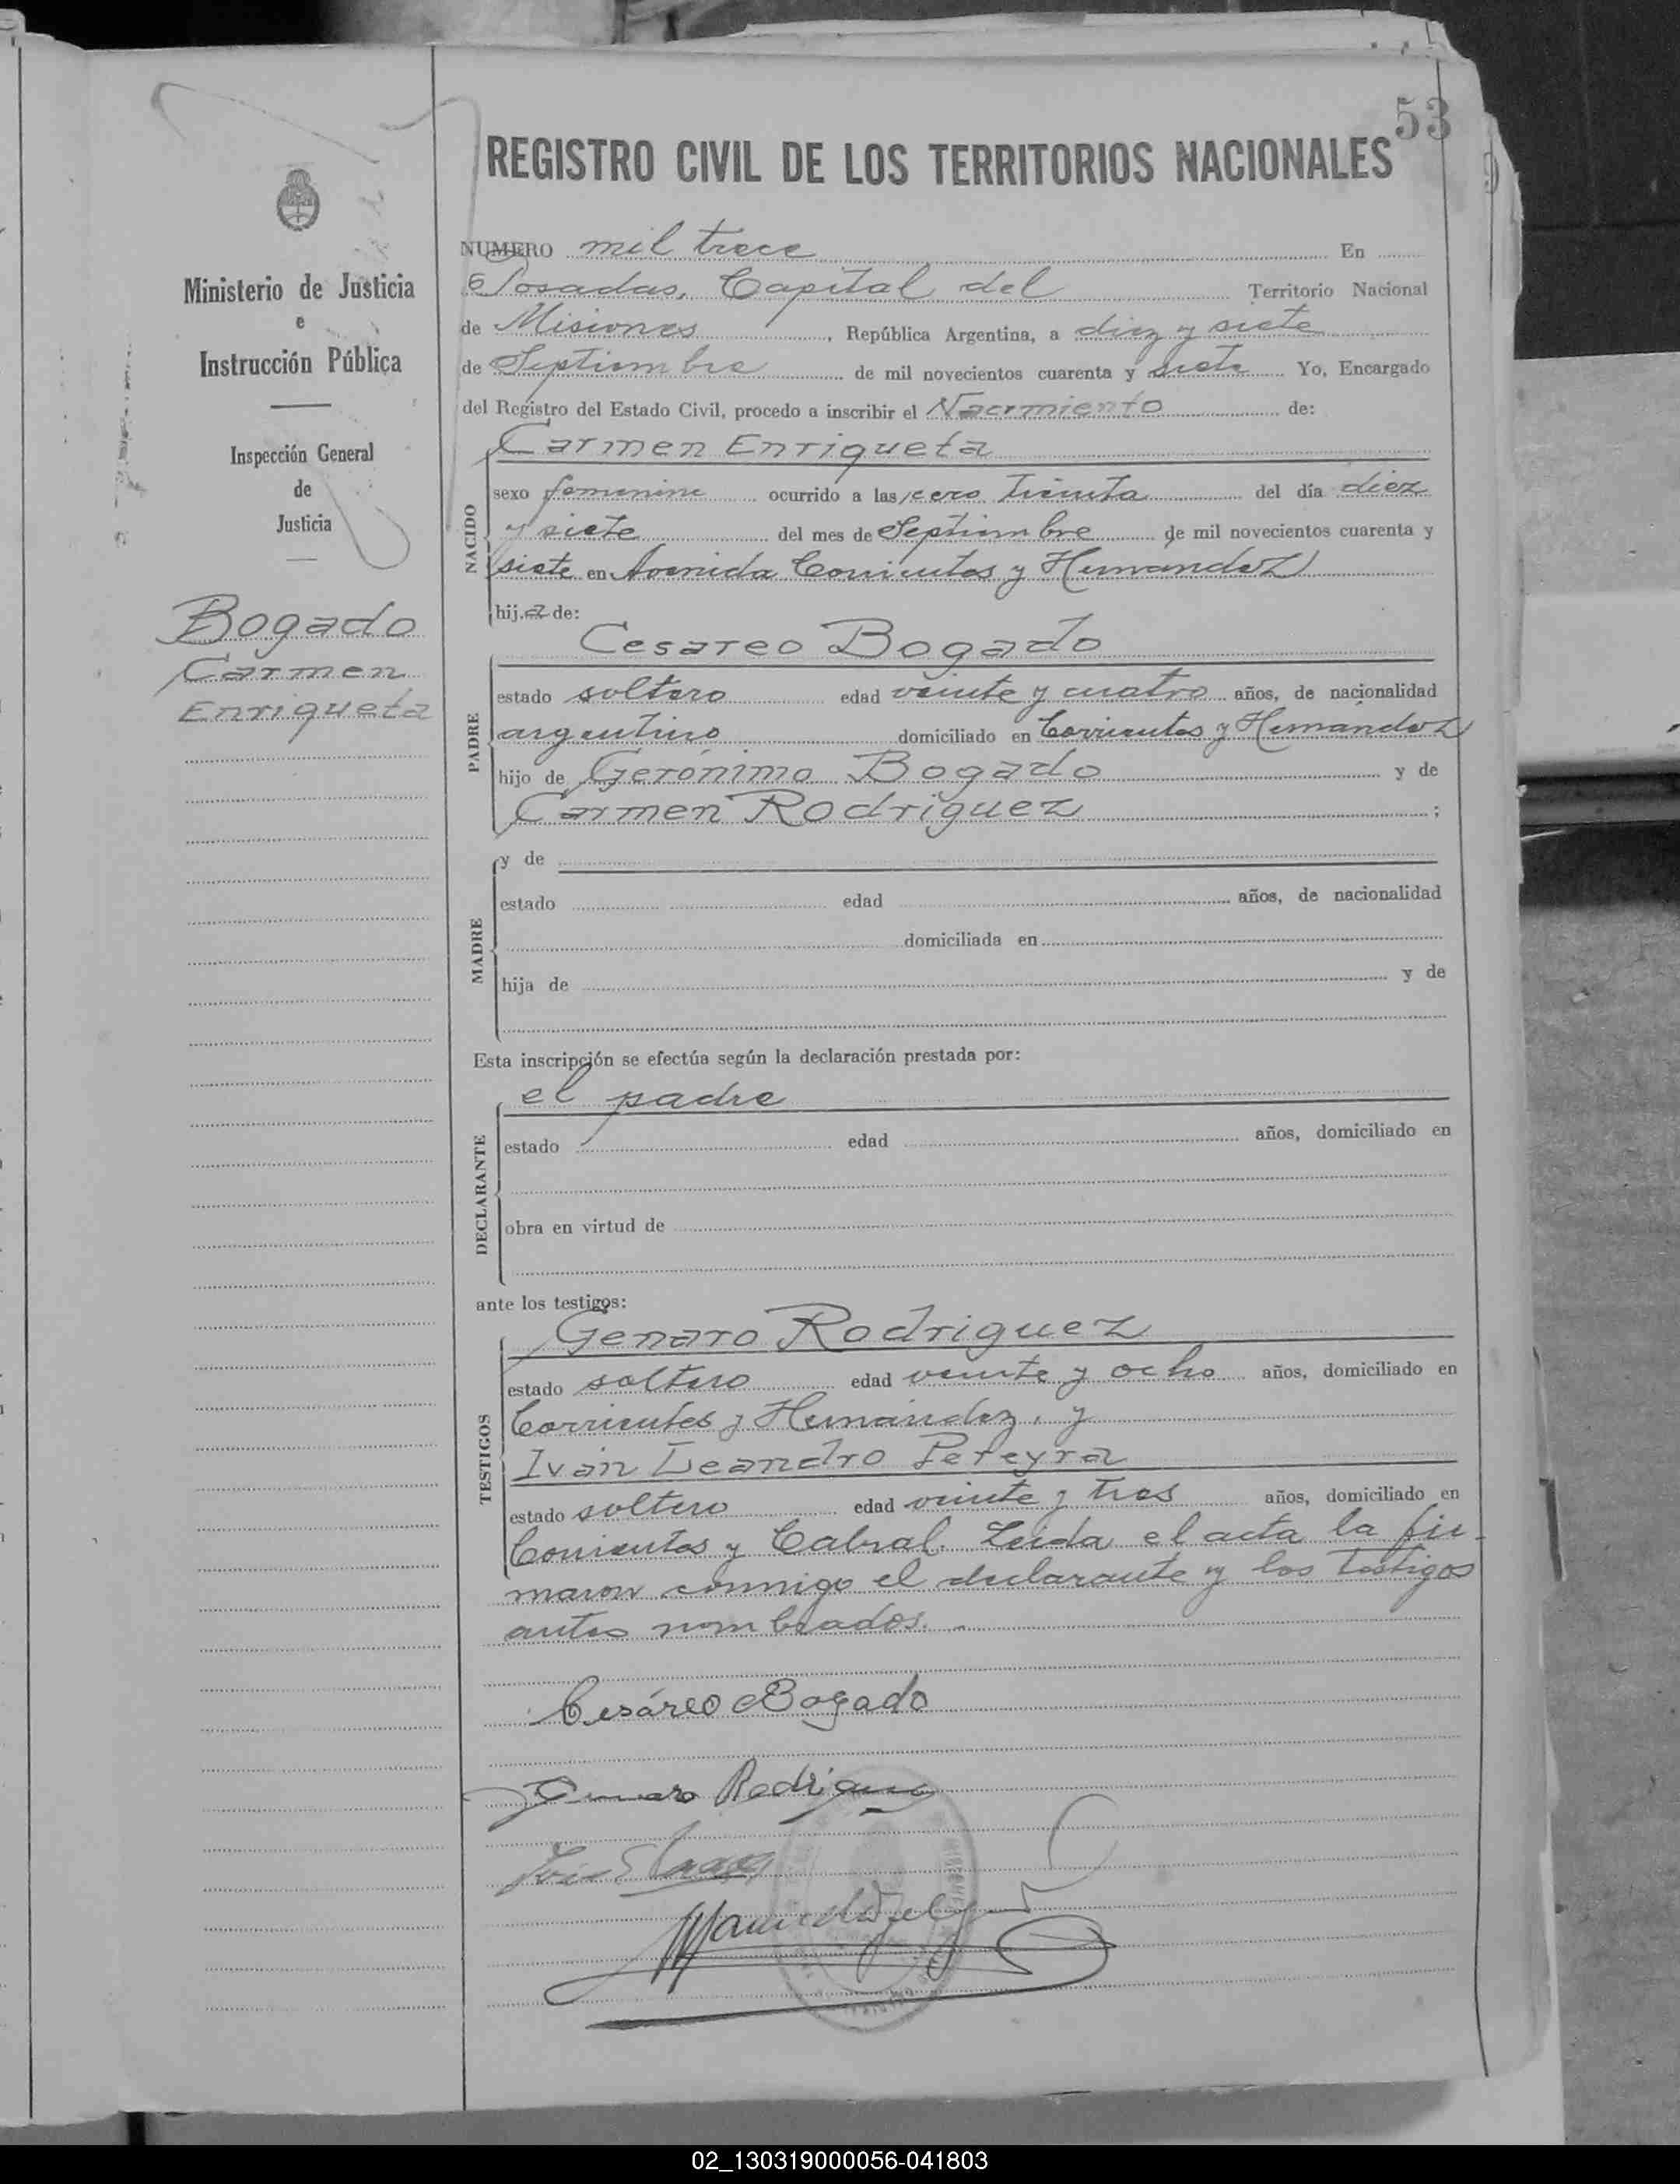 53
REGISTRO CIVIL DE LOS TERRITORIOS NACIONALES
Ministerio de Justicia
e
Instrucción Pública
Inspección General
de
Justicia
Bogado
Carmen
Enriqueta
NUMERO mil trece En
Posadas, Capital del Territorio Nacional
de Misiones, República Argentina, a diez y siete
de Septiembre de mil novecientos cuarenta y siete Yo, Encargado
del Registro del Estado Civil, procedo a inscribir el Nacimiento de:
NACIDO
Carmen Enriqueta
sexo femenino ocurrido a las cero treinta del día diez
y siete del mes de Septiembre de mil novecientos cuarenta y
siete en Avenida Corrientes y Hernandez
hija de:
PADRE
Cesareo Bogado
estado soltero edad veinte y cuatro años, de nacionalidad
argentino domiciliado en Corrientes y Hernández
hijo de Gerónimo Bogado y de
Carmen Rodriguez;
MADRE
y de
estado edad años, de nacionalidad
domiciliada en
hija de y de
Esta inscripción se efectúa según la declaración prestada por:
DECLARANTE
el padre
estado edad años, domiciliado en
obra en virtud de
ante los testigos:
TESTIGOS
Genaro Rodriguez
estado soltero edad veinte y ocho años, domiciliado en
Corrientes y Hernández, y
Iván Leandro Pereyra
estado soltero edad veinte y tres años, domiciliado en
Corrientes y Cabral. Leida el acta la fir-
maron conmigo el declarante y los testigos
antes nombrados.
Cesáreo Bogado
Genaro Rodriguez
02_130319000056-041803